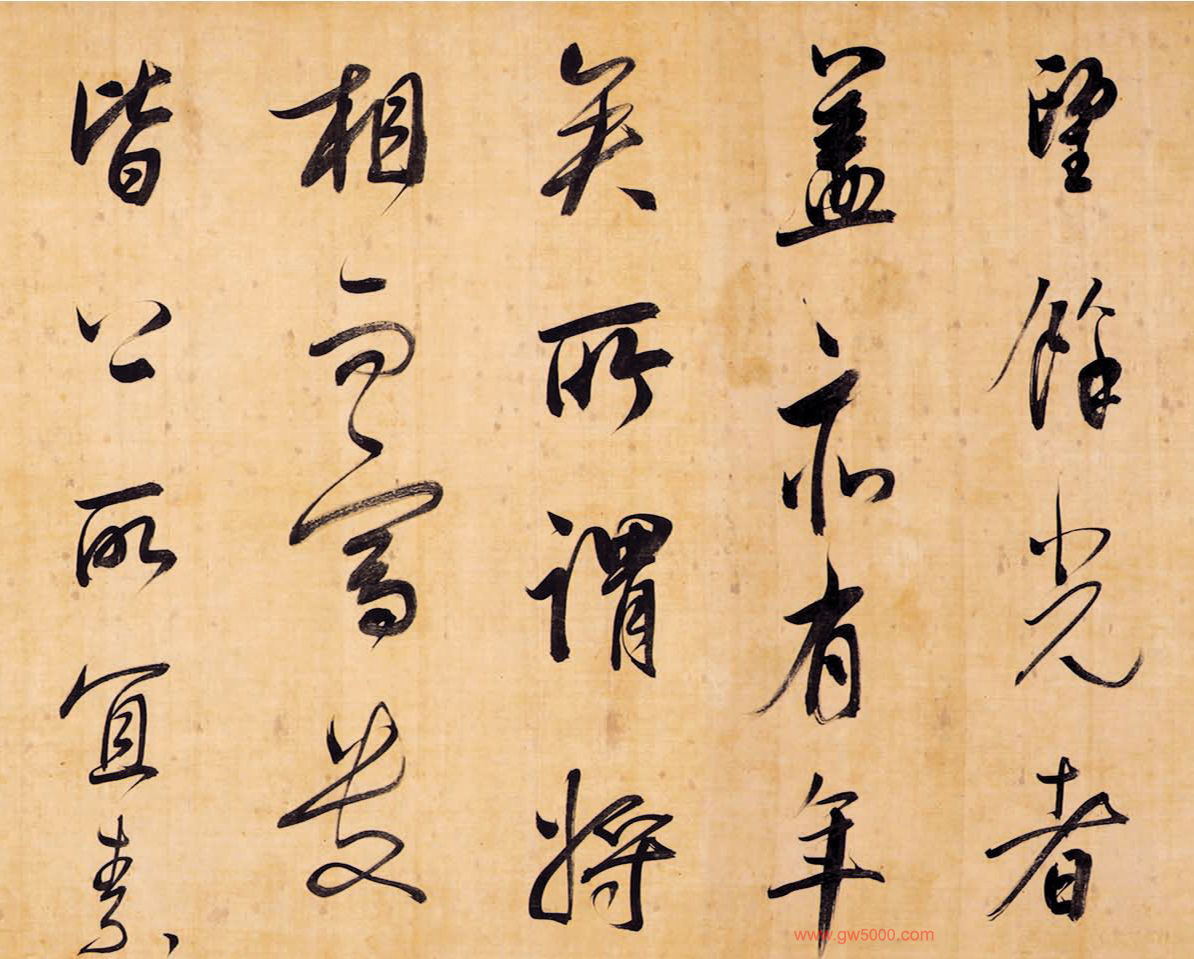 望餘光者
蓋亦有年
矣所謂將
相而富貴
皆公所宜素
www.gw5000.com